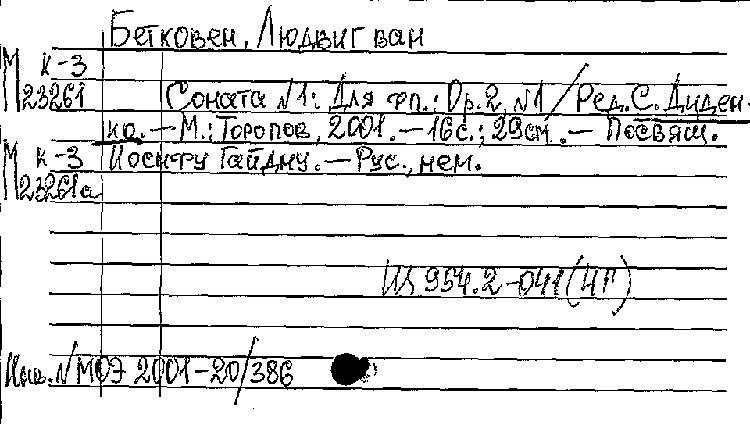 Бетховен, Людвиг ван
М К-3
23261 Соната №1: Для фп.: Op.2, №1 / Ред. С. Диден-
ко. – М.: Торопов, 2001. – 16 с.; 29 см. – Посвящ.
М К-3 Иосифу Гайдну. – Рус., нем.
23261а
Щ 954.2-041(4Г)
Инв. № МОЭ 2001-20/386